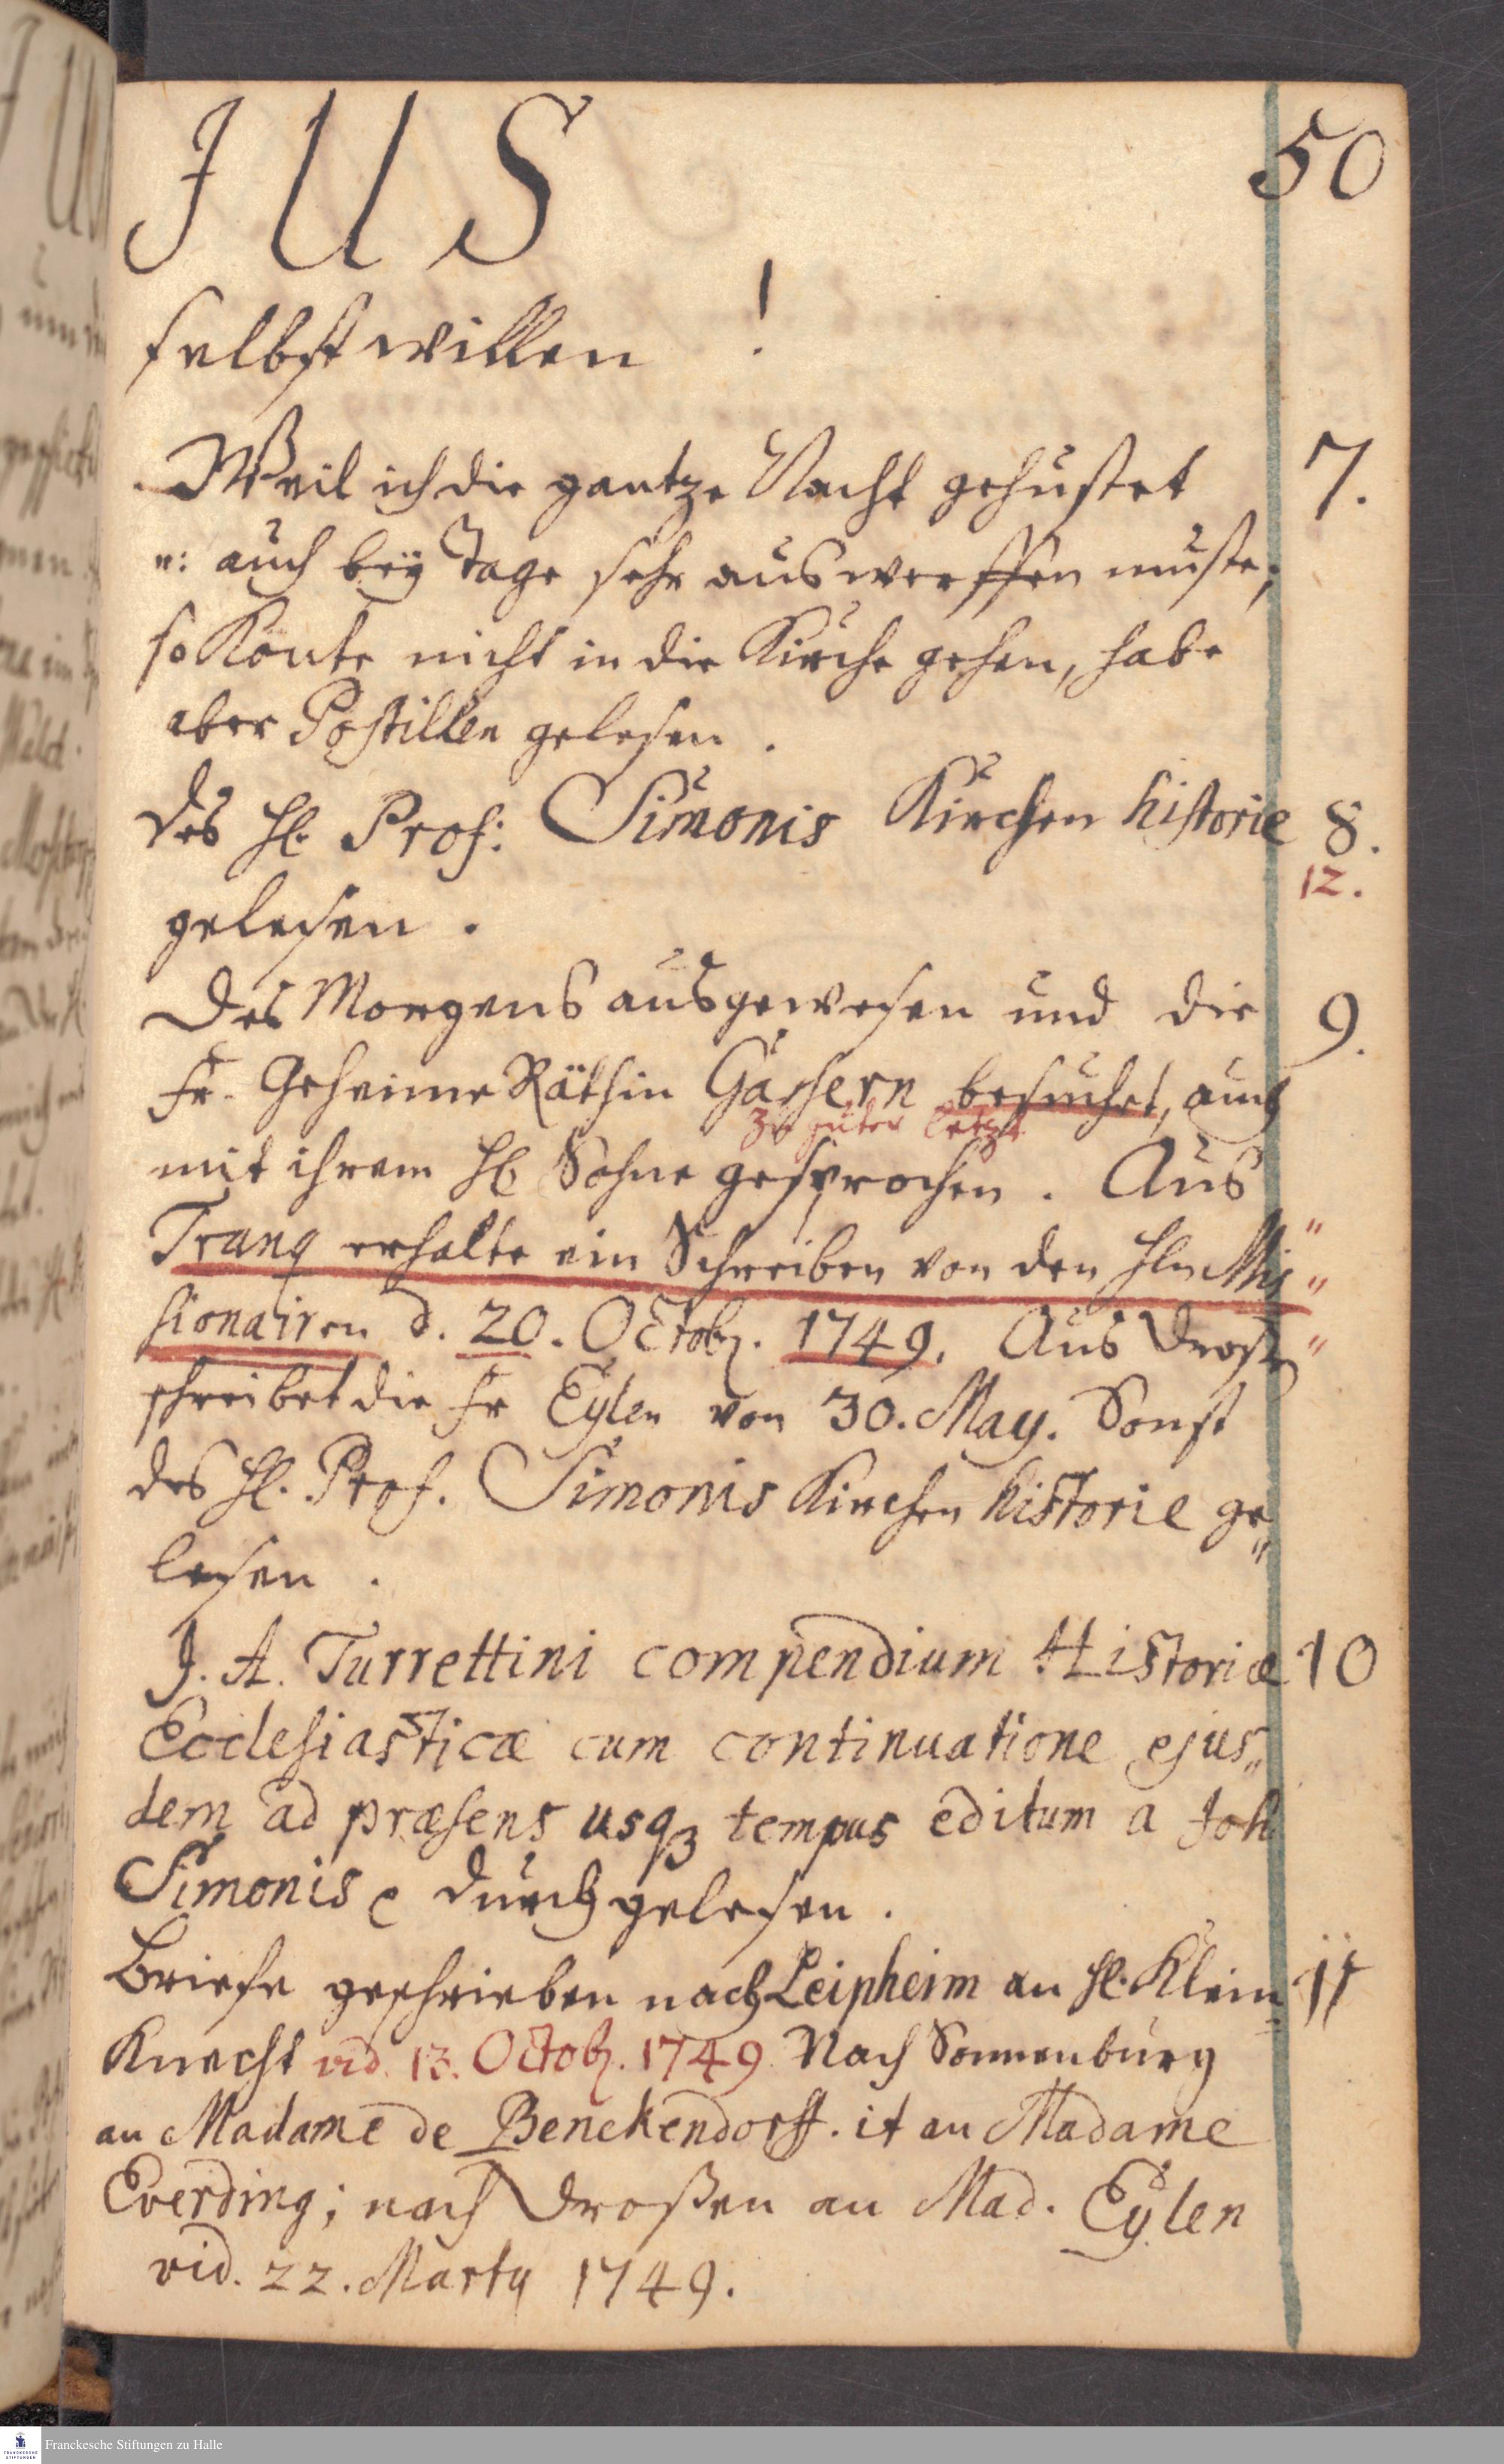 JUS 50
selbst willen !
Weil ich die gantze Nacht gehustet 7.
u: auch bey Tage sehr auswerffen muste;
so konte nicht in die Kirche gehen, habe
aber Postillen gelesen.
Des Hl. Prof: Simonis Kirchen historie 8.
12.
gelesen.
Des Morgens ausgewesen und die 9.
Fr. Geheime Räthin Gassern besuchet, auch
zu guter letzt
mit ihrem Hl. Sohne gesprochen. Aus
Tranq erhalte ein Schreiben von den Hln Mis "
sionairen d. 20. Octobr. 1749. Aus Drossen "
schreibet die Fr Eylen von 30. May. Sonst
des Hl. Prof. Simonis Kirchen historie ge„
lesen.
J. A. Turrettini compendium Historiæ 10
Ecclesiasticæ cum continuatione ejus„
dem ad præsens usqꝫ tempus editum a Joh.
Simonis durchgelesen.
Briefe geschrieben nach Leipheim an Hl. Klein 11
Knecht vid. 13. Octobr. 1749. Nach Sonnenburg
an Madame de Benckendorff. it an Madame
Everding; nach Droßen an Mad. Eylen
vid. 22. Marty 1749.
Franckesche Stiftungen zu Halle